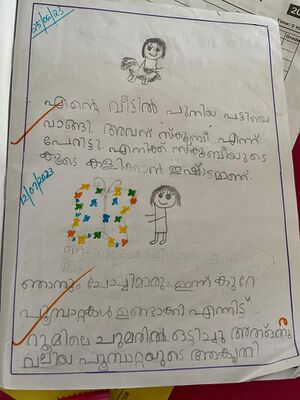 05/06/23
എന്റെ വീട്ടിൽ പുതിയ പട്ടിയെ
വാങ്ങി. അവന് സ്കൂബീ എന്ന്
പേരിട്ടു. എനിക്ക് സ്കൂബീയുടെ
കൂടെ കളിക്കാൻ ഇഷ്ടമാണ്.
12/07/2023
ഞാനും ചേച്ചിമാരും ഇന്ന് കുറേ
പൂമ്പാറ്റകൾ ഉണ്ടാക്കി എന്നിട്ട്
റൂമിലെ ചുമരിൽ ഒട്ടിച്ചു
വലിയ പൂമ്പാറ്റയുടെ ആകൃതി